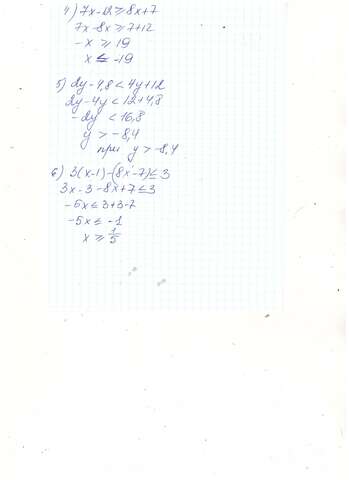 4) 7x-12≥8x+7
7x-8x≥7+12
-x ≥ 19
x ≤ -19
5) 2y-4,8<4y+12
2y-4y<12+4,8
-2y <16,8
y > -8,4
при y > -8,4
6) 3(x-1)-(8x-7)≤3
3x-3-8x+7≤3
-5x≤3+3-7
-5x≤ -1
x ≥ 1/5